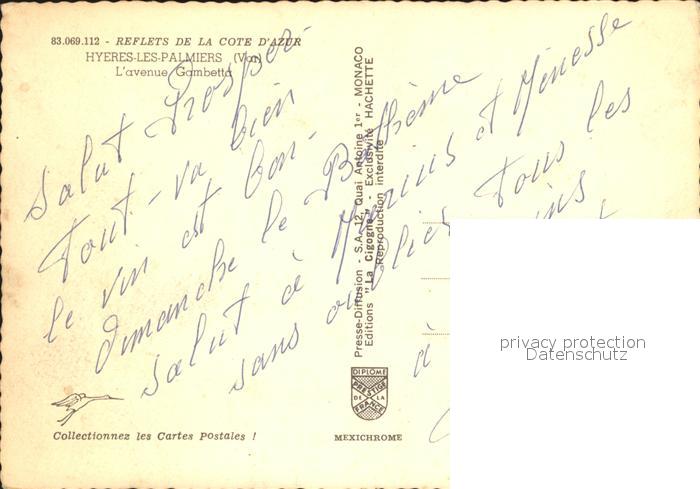 83.069.112 - REFLETS DE LA COTE D'AZUR
HYERES-LES-PALMIERS (Var)
L'avenue Gambetta
Salut Prosper
Tout-va bien
le vin est bon-
dimanche le Baptême
Salut à Marius et Ménesse
sans oublier Tous les
à
Presse-Diffusion - S.A. 12, Quai Antoine 1er - MONACO
Editions "La Cigogne" - Exclusivité HACHETTE
Reproduction interdite
DIPLOME
PRESTIGE
DE LA
FRANCE
Collectionnez les Cartes Postales !
MEXICHROME
privacy protection
Datenschutz